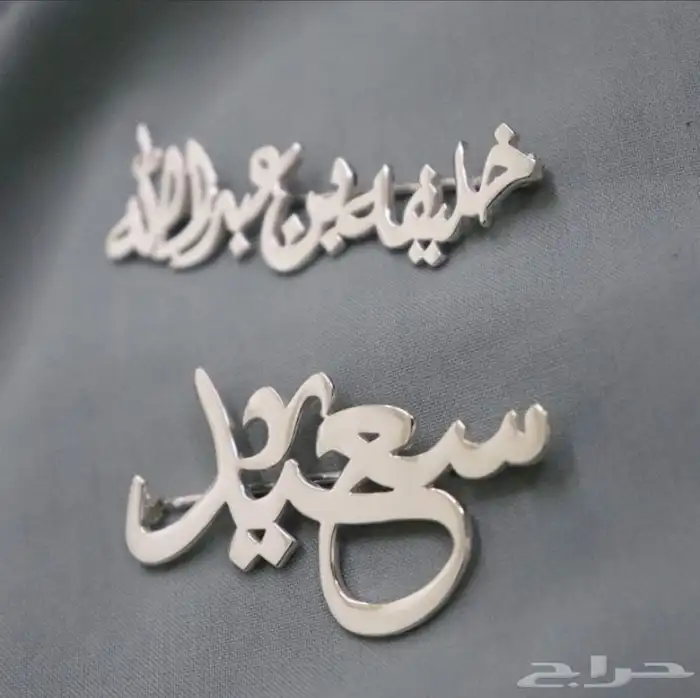 خليفه بن عبدالله
سعيد
حراج